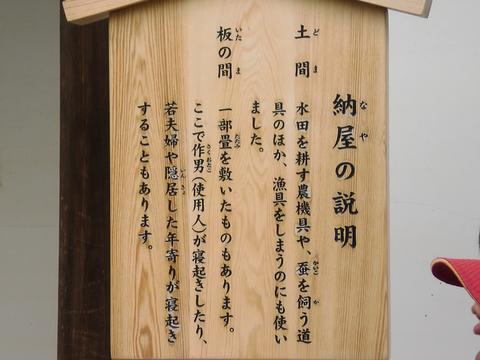 納屋の説明
なや
土間 水田を耕す農機具や、蚕を飼う道
どま かいこ か
具のほか、漁具をしまうのにも使い
ました。
板の間 一部畳を敷いたものもあります。
いた ま たたみ
ここで作男(使用人)が寝起きしたり、
さくおとこ
若夫婦や隠居した年寄りが寝起き
いんきょ
することもあります。